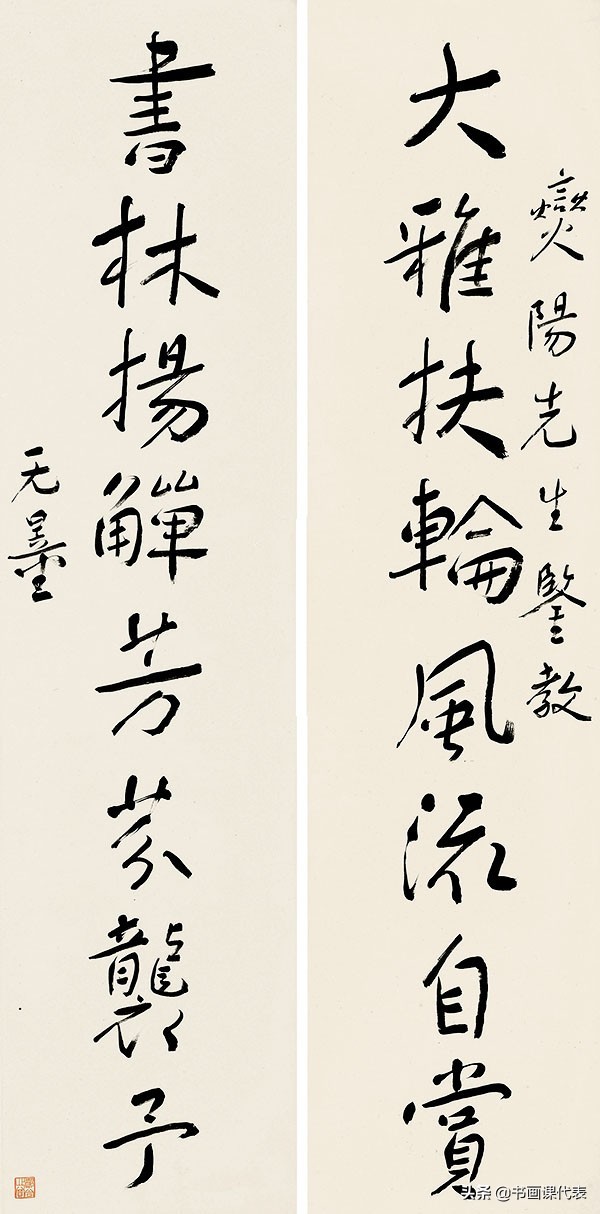 燮陽先生鑒教
大雅扶輪風流自賞
書林揚觶芳芬襲予
无量
头条 @书画课代表